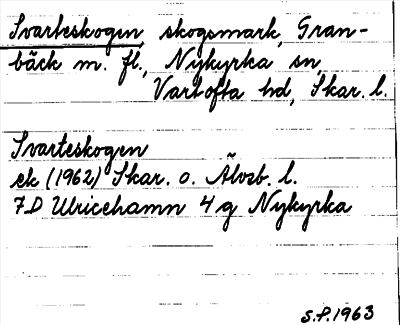 Svarteskogen, skogsmark, Gran-
bäck m. fl., Nykyrka sn,
Vartofta hd, Skar. l.
Svarteskogen
ek (1962) Skar. o. Älvsb. l.
7D Ulricehamn 4 g Nykyrka
S.P. 1963